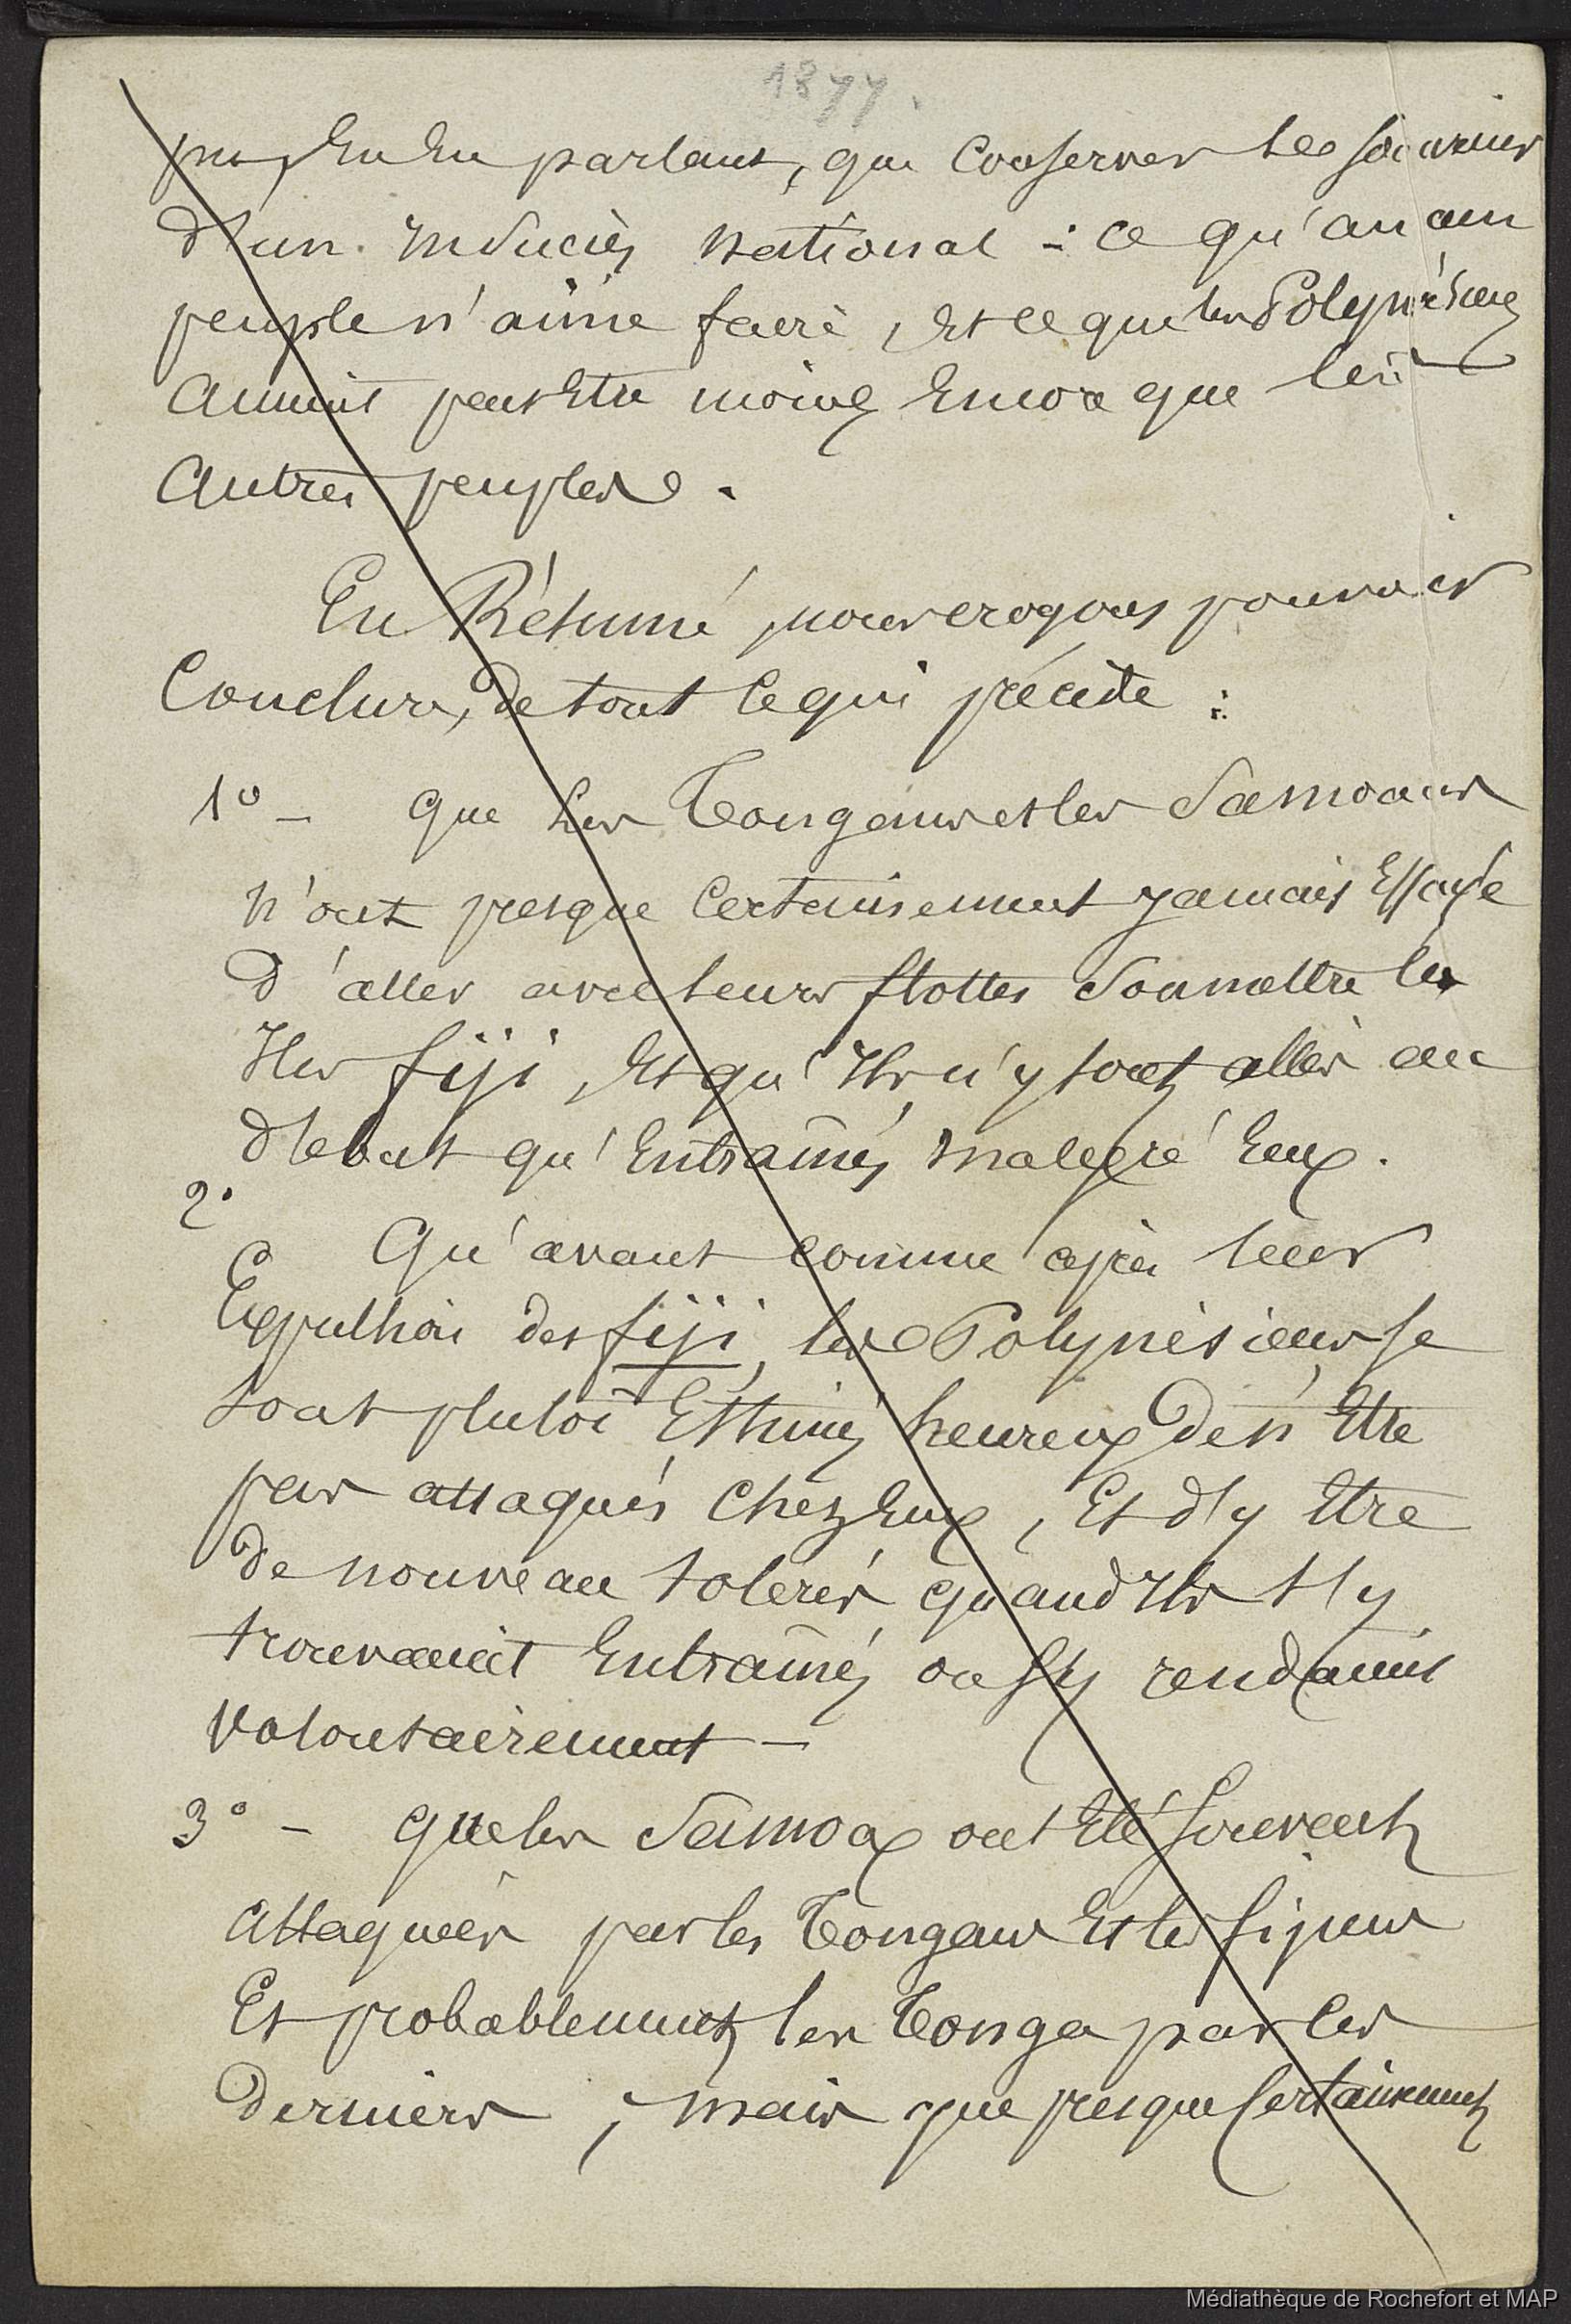 1877.
pas, En En parlant, que Conserver les souvenirs
d'un insuccès national - ce qu'aucun
peuple n'aime faire, Et ce que les Polynésiens
aiment peut Etre moins Encore que les
autres peuples.
En Résumé, nous croyons pouvoir
Conclure, de tout ce qui précède :
1º - que les Tongans et les Samoans
n'ont presque Certainement jamais Essayé
d'aller avec leurs flottes soumettre les
Iles fiji, Et qu'Ils n'y sont allés au
début qu'Entraînés malgré Eux.
2º
Qu'avant comme après leur
Expulsion des fiji, les Polynésiens se
sont plutôt Estimés heureux de n'Etre
pas attaqués Chez Eux, Et d'y Etre
de nouveau tolérés quand Ils s'y
trouvaient Entraînés ou s'y rendaient
volontairement -
3º - que les Samoa ont Eté souvent
attaquées par les Tongans Et les fijiens
Et probablement les Tonga par les
derniers ; mais que presque Certainement
Médiathèque de Rochefort et MAP